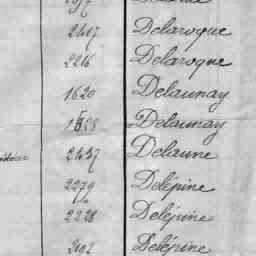 2417 Delaroque
2216 Delaroque
1620 Delaunay
1558 Delaunay
2437 Delaune
2279 Delépine
2228 Delépine
2192 Delépine